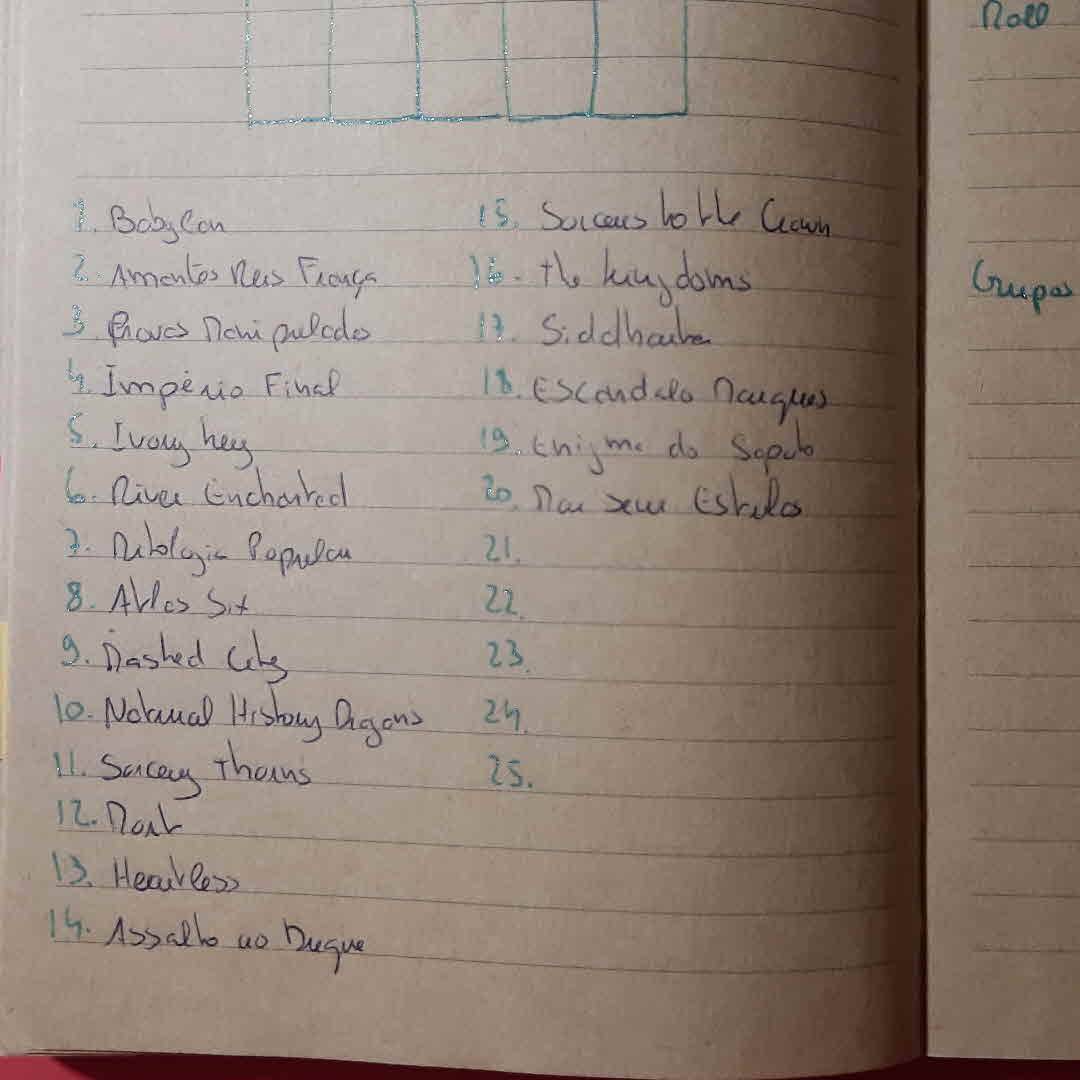 Roll
Grupos
1. Babylon
2. Amantes Reis França
3. Provas Manipuladas
4. Império Final
5. Ivory key
6. River Enchanted
7. Mitologia Popular
8. Atlas Six
9. Masked City
10. Natural History Dragons
11. Sorcery Thorns
12. Mort
13. Heartless
14. Assalto ao Duque
15. Sorcerer to the Crown
16. The kingdoms
17. Siddhartha
18. Escândalo Marquês
19. Enigma do Sapato
20. Mar sem Estrelas
21.
22.
23.
24.
25.